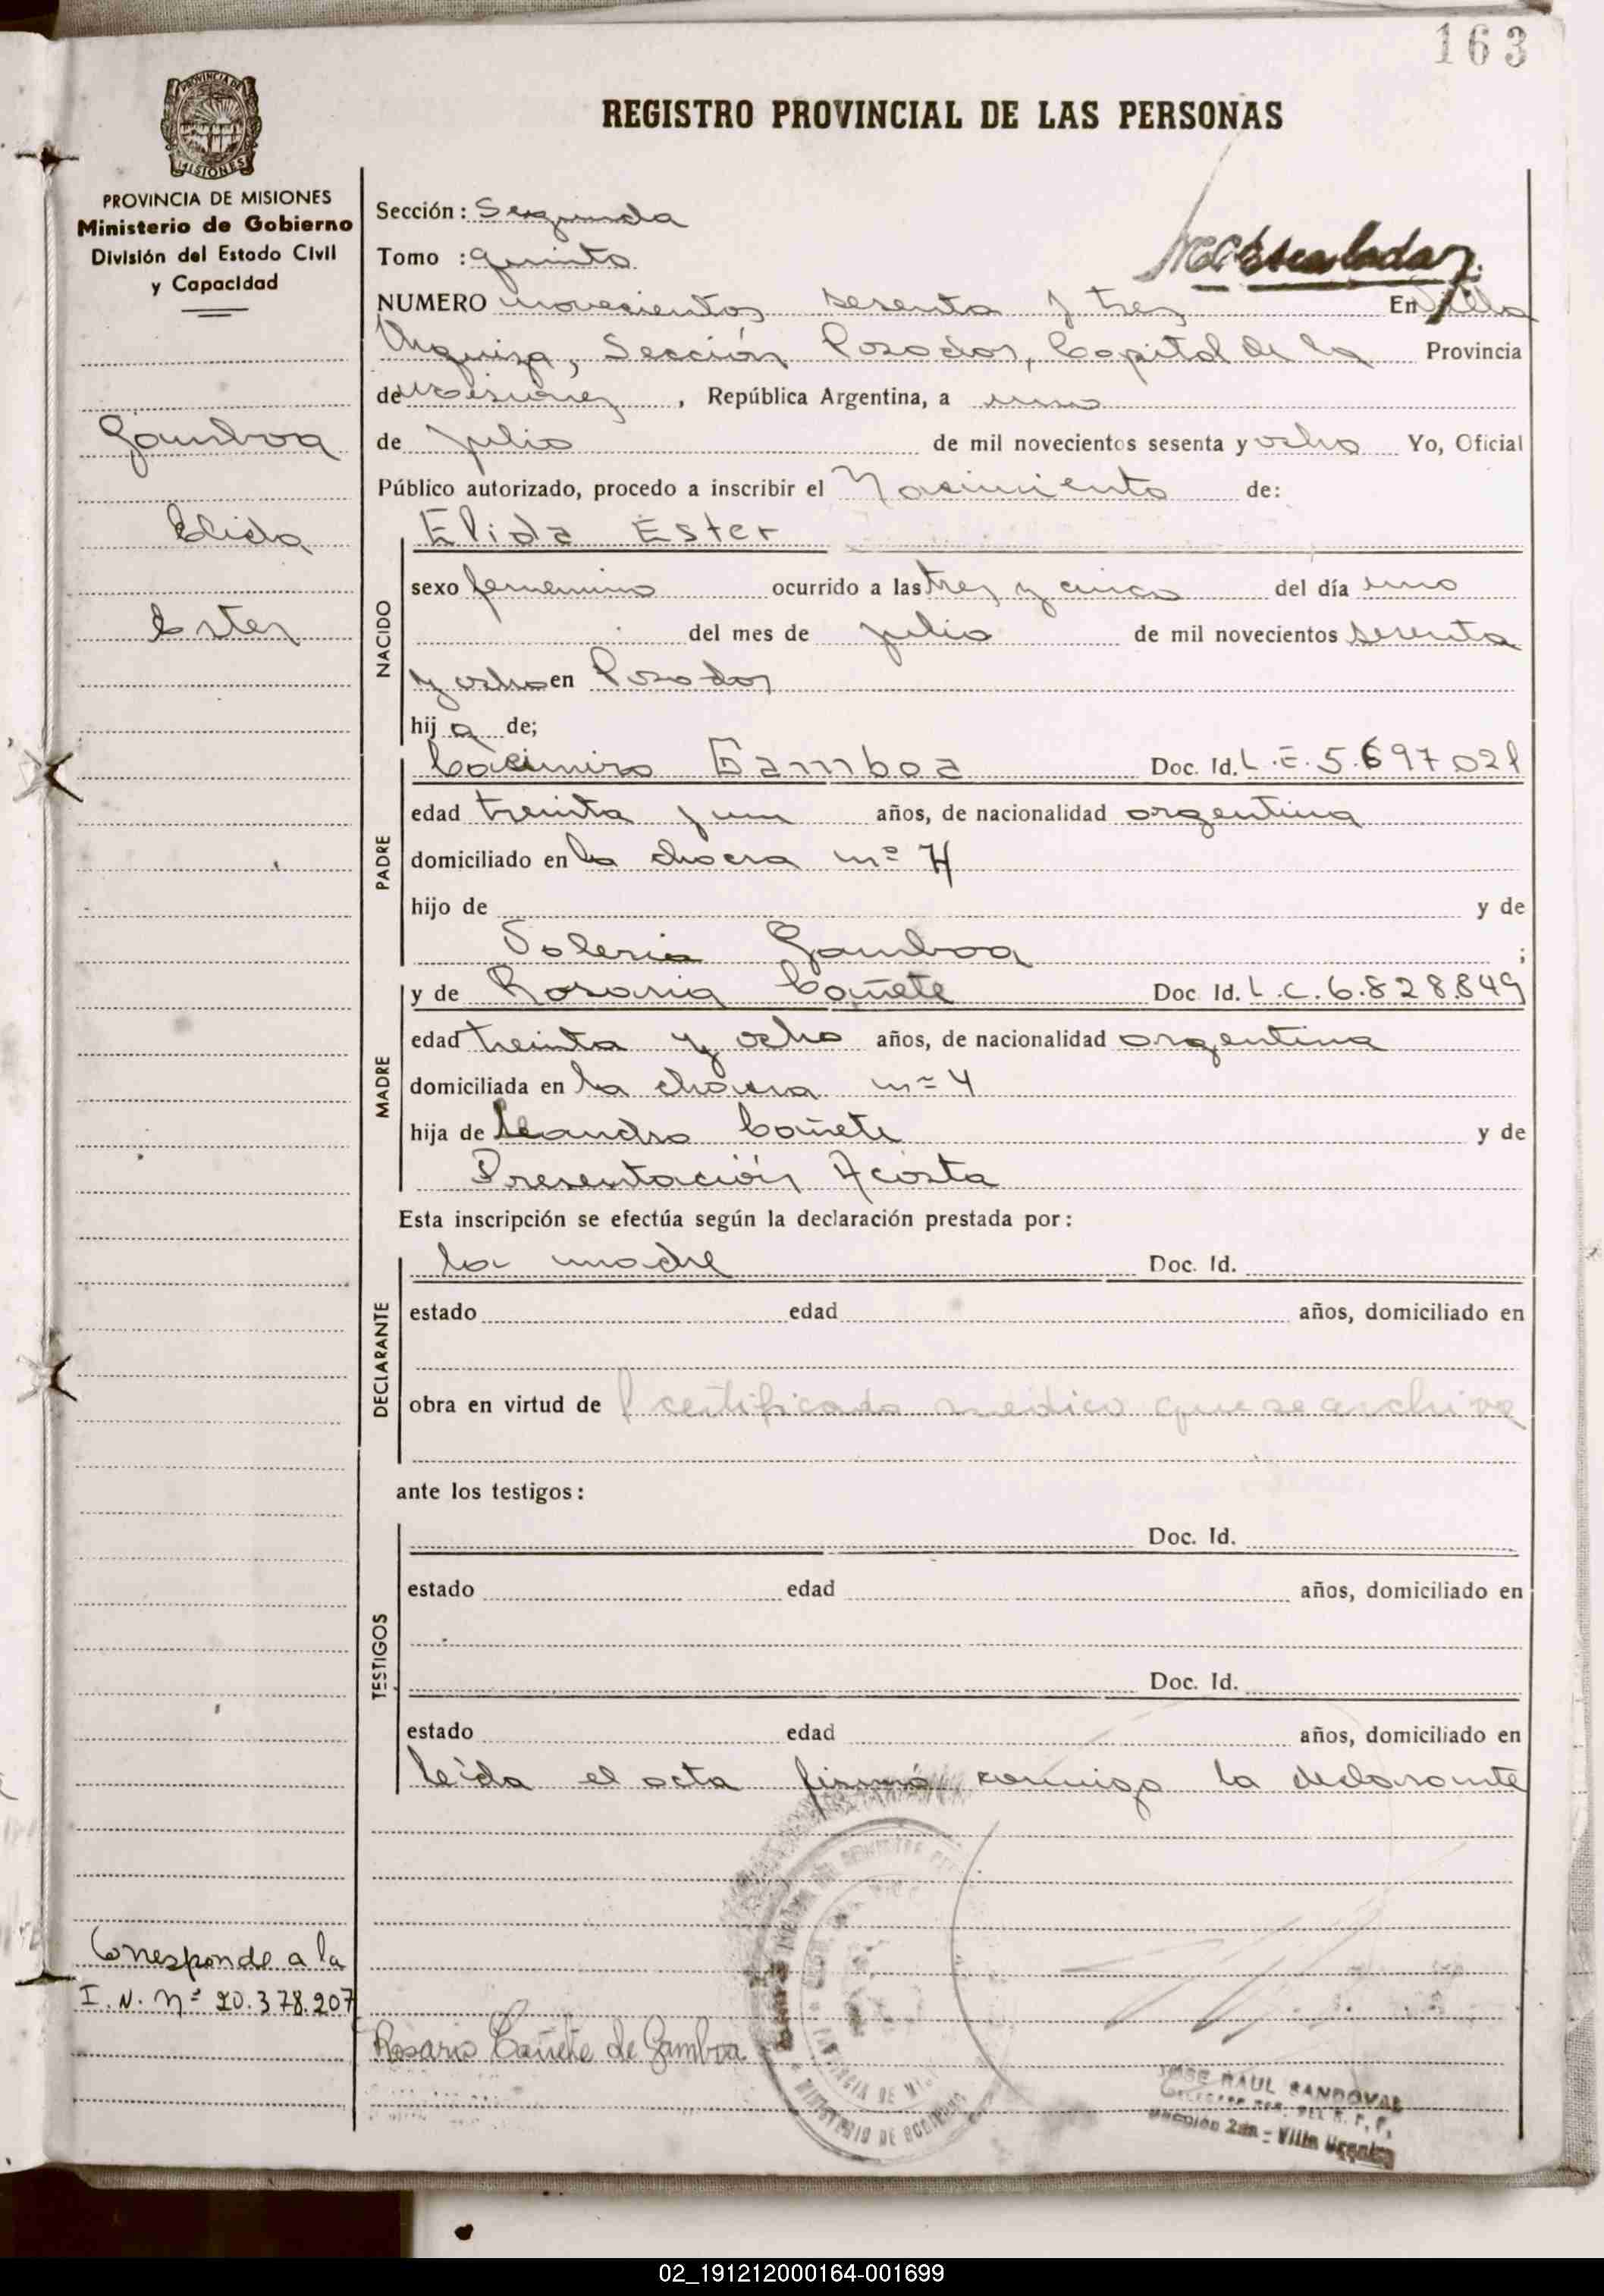 163
PROVINCIA DE
MISIONES
REGISTRO PROVINCIAL DE LAS PERSONAS
PROVINCIA DE MISIONES
Ministerio de Gobierno
División del Estado Civil
y Capacidad
Gamboa
Elida
Ester
Sección: Segunda
Tomo : quinto
NUMERO novecientos sesenta y tres En Villa
Urquiza, Sección Posadas, Capital de la Provincia
de Misiones, República Argentina, a uno
de julio de mil novecientos sesenta y ocho Yo, Oficial
Público autorizado, procedo a inscribir el Nacimiento de:
NACIDO
Elida Ester
sexo femenino ocurrido a las tres y cinco del día uno
del mes de julio de mil novecientos sesenta
y ocho en Posadas
hij a de;
PADRE
Casimiro Gamboa Doc. Id. L.E. 5.697021
edad treinta y un años, de nacionalidad argentina
domiciliado en la chacra nº 4
hijo de y de
Valeria Gamboa ;
MADRE
y de Rosaria Cañete Doc. Id. L.C. 6.828849
edad treinta y ocho años, de nacionalidad argentina
domiciliada en la chacra nº 4
hija de Leandro Cañete y de
Presentación Acosta
Esta inscripción se efectúa según la declaración prestada por:
DECLARANTE
la madre Doc. Id.
estado edad años, domiciliado en
obra en virtud de l certificado medico que se archiva
ante los testigos:
TESTIGOS
Doc. Id.
estado edad años, domiciliado en
Doc. Id.
estado edad años, domiciliado en
leída el acta firmó conmigo la declarante
Corresponde a la
I.N. Nº 20.378.207
Rosario Cañete de Gamboa
MINISTERIO DE GOBIERNO
JOSE RAUL SANDOVAL
DEL R. P. P.
Sección 2da - Villa Urquiza
02_191212000164-001699